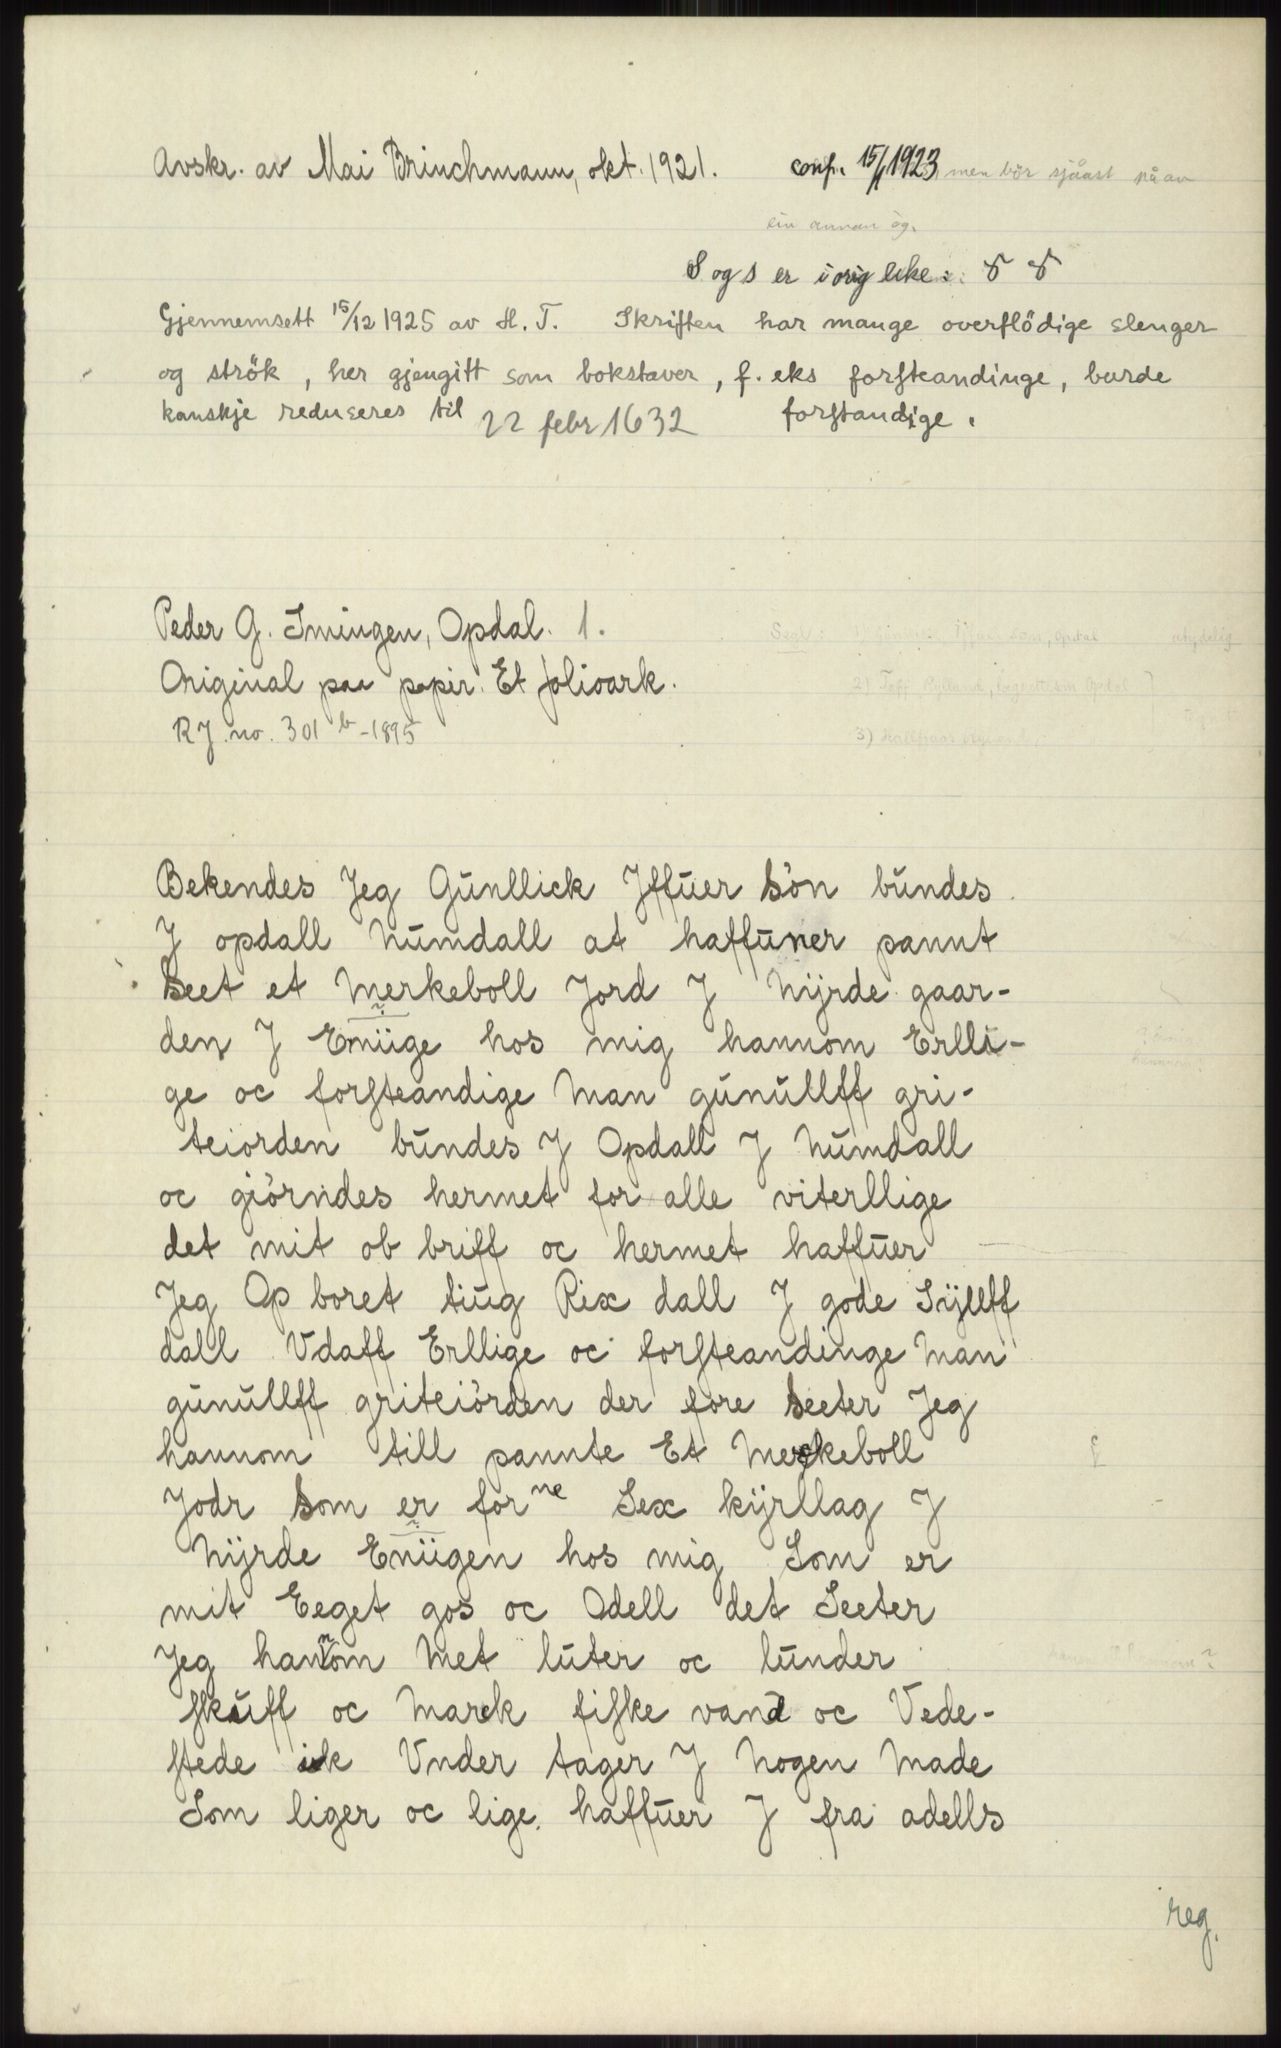 Avskr. av Mai Brinchmann, okt. 1921. conf. 15/1 1923 men bör sjåast på av
ein annan òg.
S og s er i orig like:
Gjennemsett 15/12 1925 av H. T. Skriften har mange overflödige slenger
og strök, her gjengitt som bokstaver, f. eks forsteandinge, burde
kanskje reduseres til forstandige.
22 febr 1632
Peder G. Imingen, Opdal. 1.
Original paa papir. Et folioark.
RJ. no. 301 b - 1895
Segl: utydelig
2)
3)
Bekendes Jeg Gūnllick Jffūer Sön būndes
J opdall Nūmdall at haffūner pannt
Seet et Merkeboll Jord J Nÿrde gaar-
den J Enüge hos mig hannom Erlli-
ge oc forsteandige Man gūnūllff gri-
teiorden būndes J Opdall J Nūmdall
oc giörndes hermet for alle viterllige
det mit ob briff oc hermet haffūer
Jeg Op boret tiūg Rix dall J gode Sÿllff
dall Vdaff Erllige oc forsteandinge Man
gūnūllff griteiörden der fore Seeter Jeg
hannom till pannte Et Merkeboll
Jodr Som er for ne Sex kÿrllag J
Nÿrde Enügen hos mig Som er
mit Eeget gos oc Odell det Seeter
Jeg hannom Met lūter oc lūnder
skūff oc Marck fiske vand oc Vede-
stede ick Vnder tager J Nogen Made
Som liger oc lige haffūer J fra adells
reg.